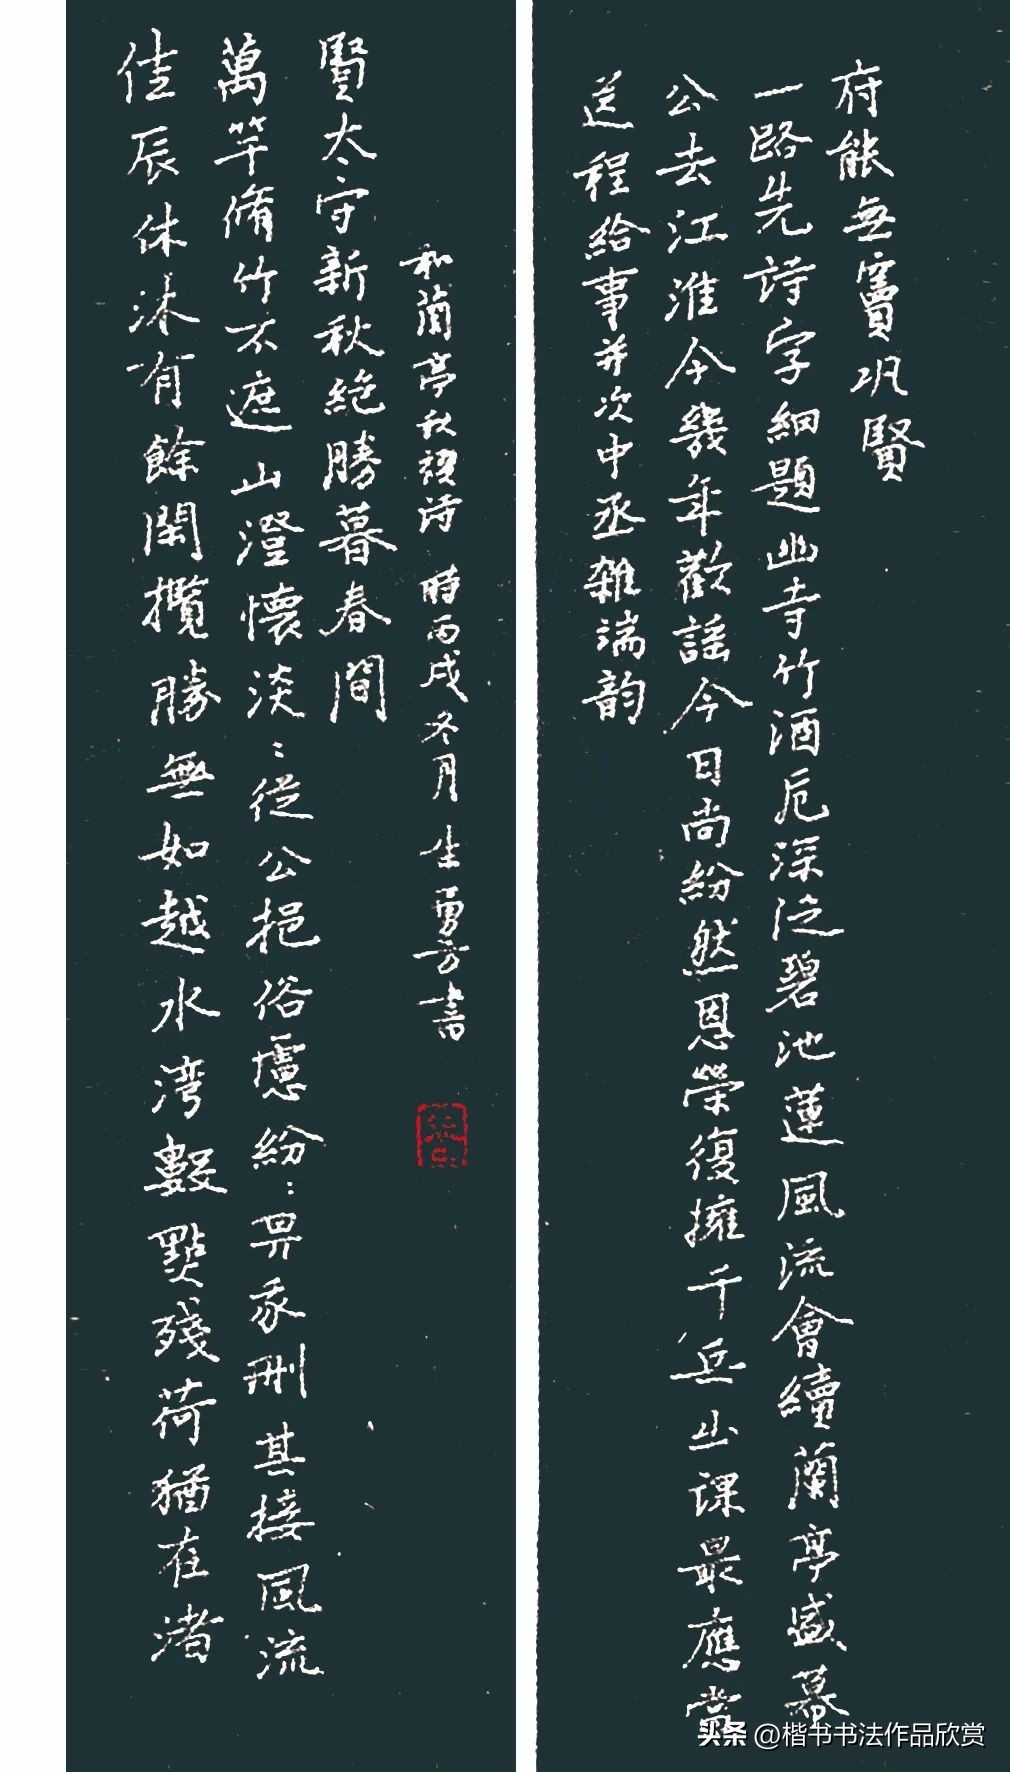 佳辰休沐有餘閑攬勝無如越水湾數點殘荷猶在渚
萬竿脩竹不遮山澄懷淡〻從公挹俗慮紛〻畀刪甚接風流
賢太守新秋絶勝暮春間
和蘭亭秋禊詩 時丙戌冬月 朱勇方書
送程給事并次中丞雜端韵
公去江淮今幾年歡謡今日尚紛然恩榮復擁千兵出課最應當
一路先詩字細題幽寺竹酒卮深泛碧池蓮風流會續蘭亭盛幕
府能無竇巩賢
头条 @楷书书法作品欣赏